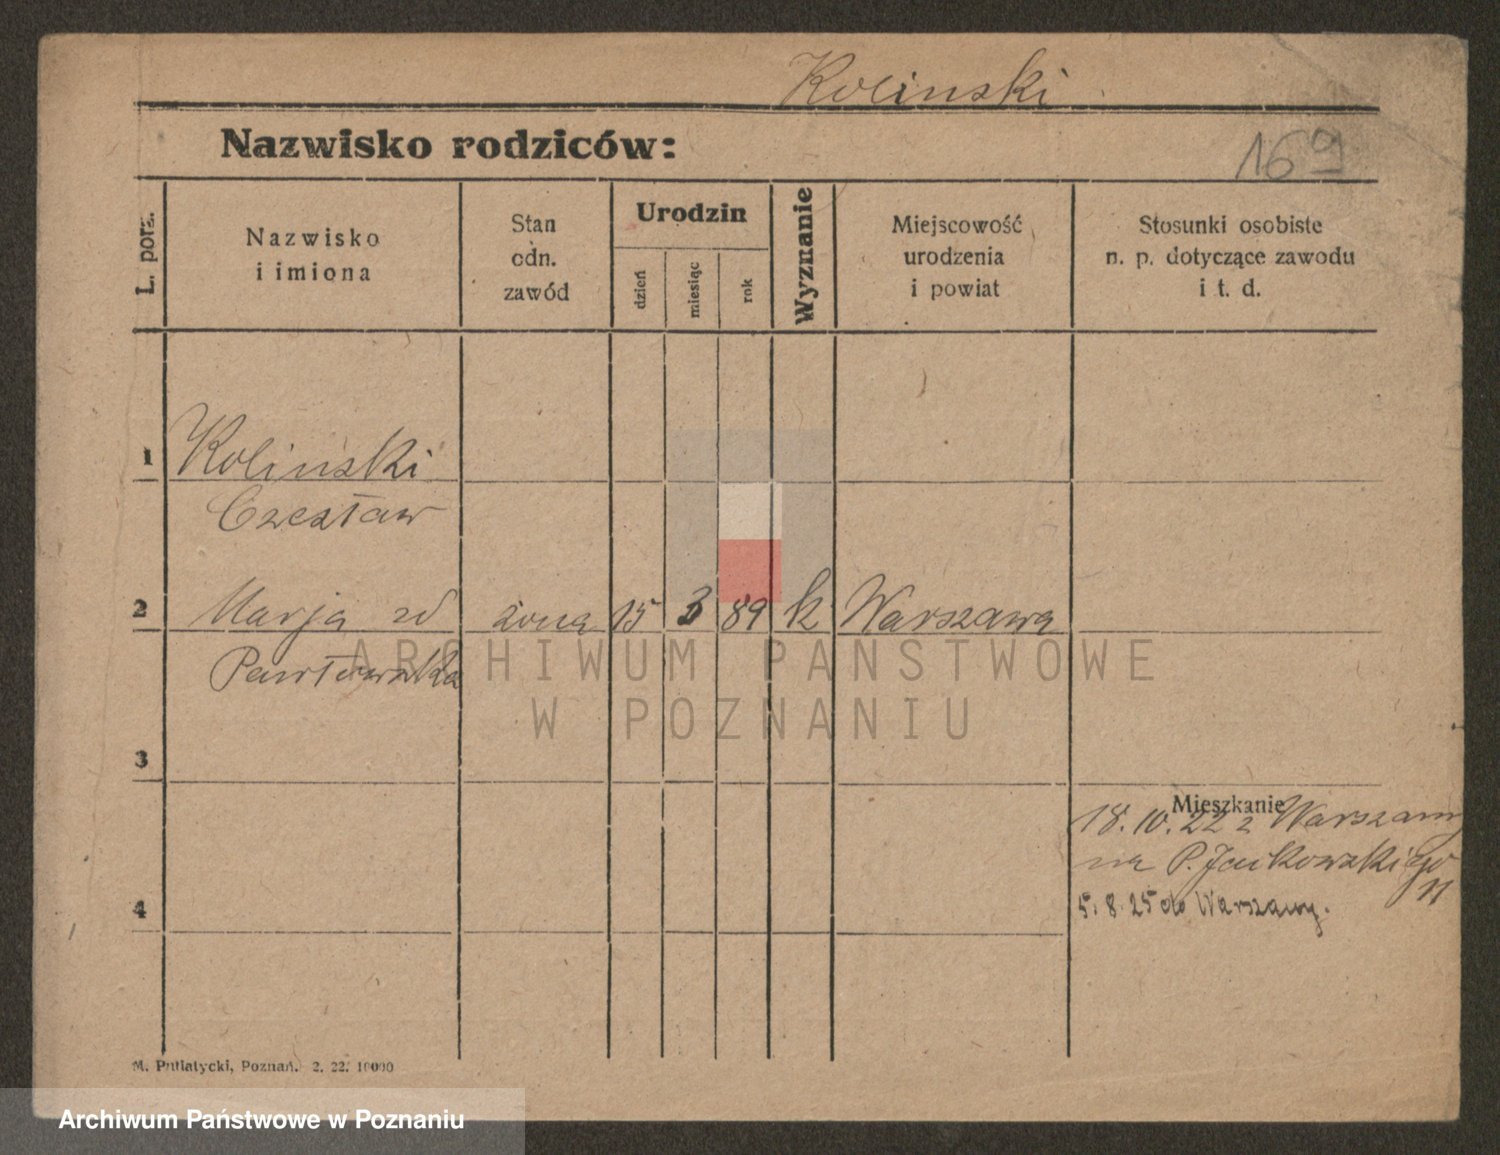 Kolinski
Nazwisko rodziców:
169
L. porz.
Nazwisko
i imiona
Stan
odn.
zawód
Urodzin
dzień
miesiąc
rok
Wyznanie
Miejscowość
urodzenia
i powiat
Stosunki osobiste
n. p. dotyczące zawodu
i t. d.
1 Kolinski
Czesław
2 Marja zd żona 15 3 89 k Warszawa
Pawłowska
ARCHIWUM PAŃSTWOWE
W POZNANIU
3
Mieszkanie
18.10.22 z Warszawy
na P. Jackowskiego
11
4
5. 8. 25 do Warszawy.
M. Putiatycki, Poznań. 2. 22. 10000
Archiwum Państwowe w Poznaniu